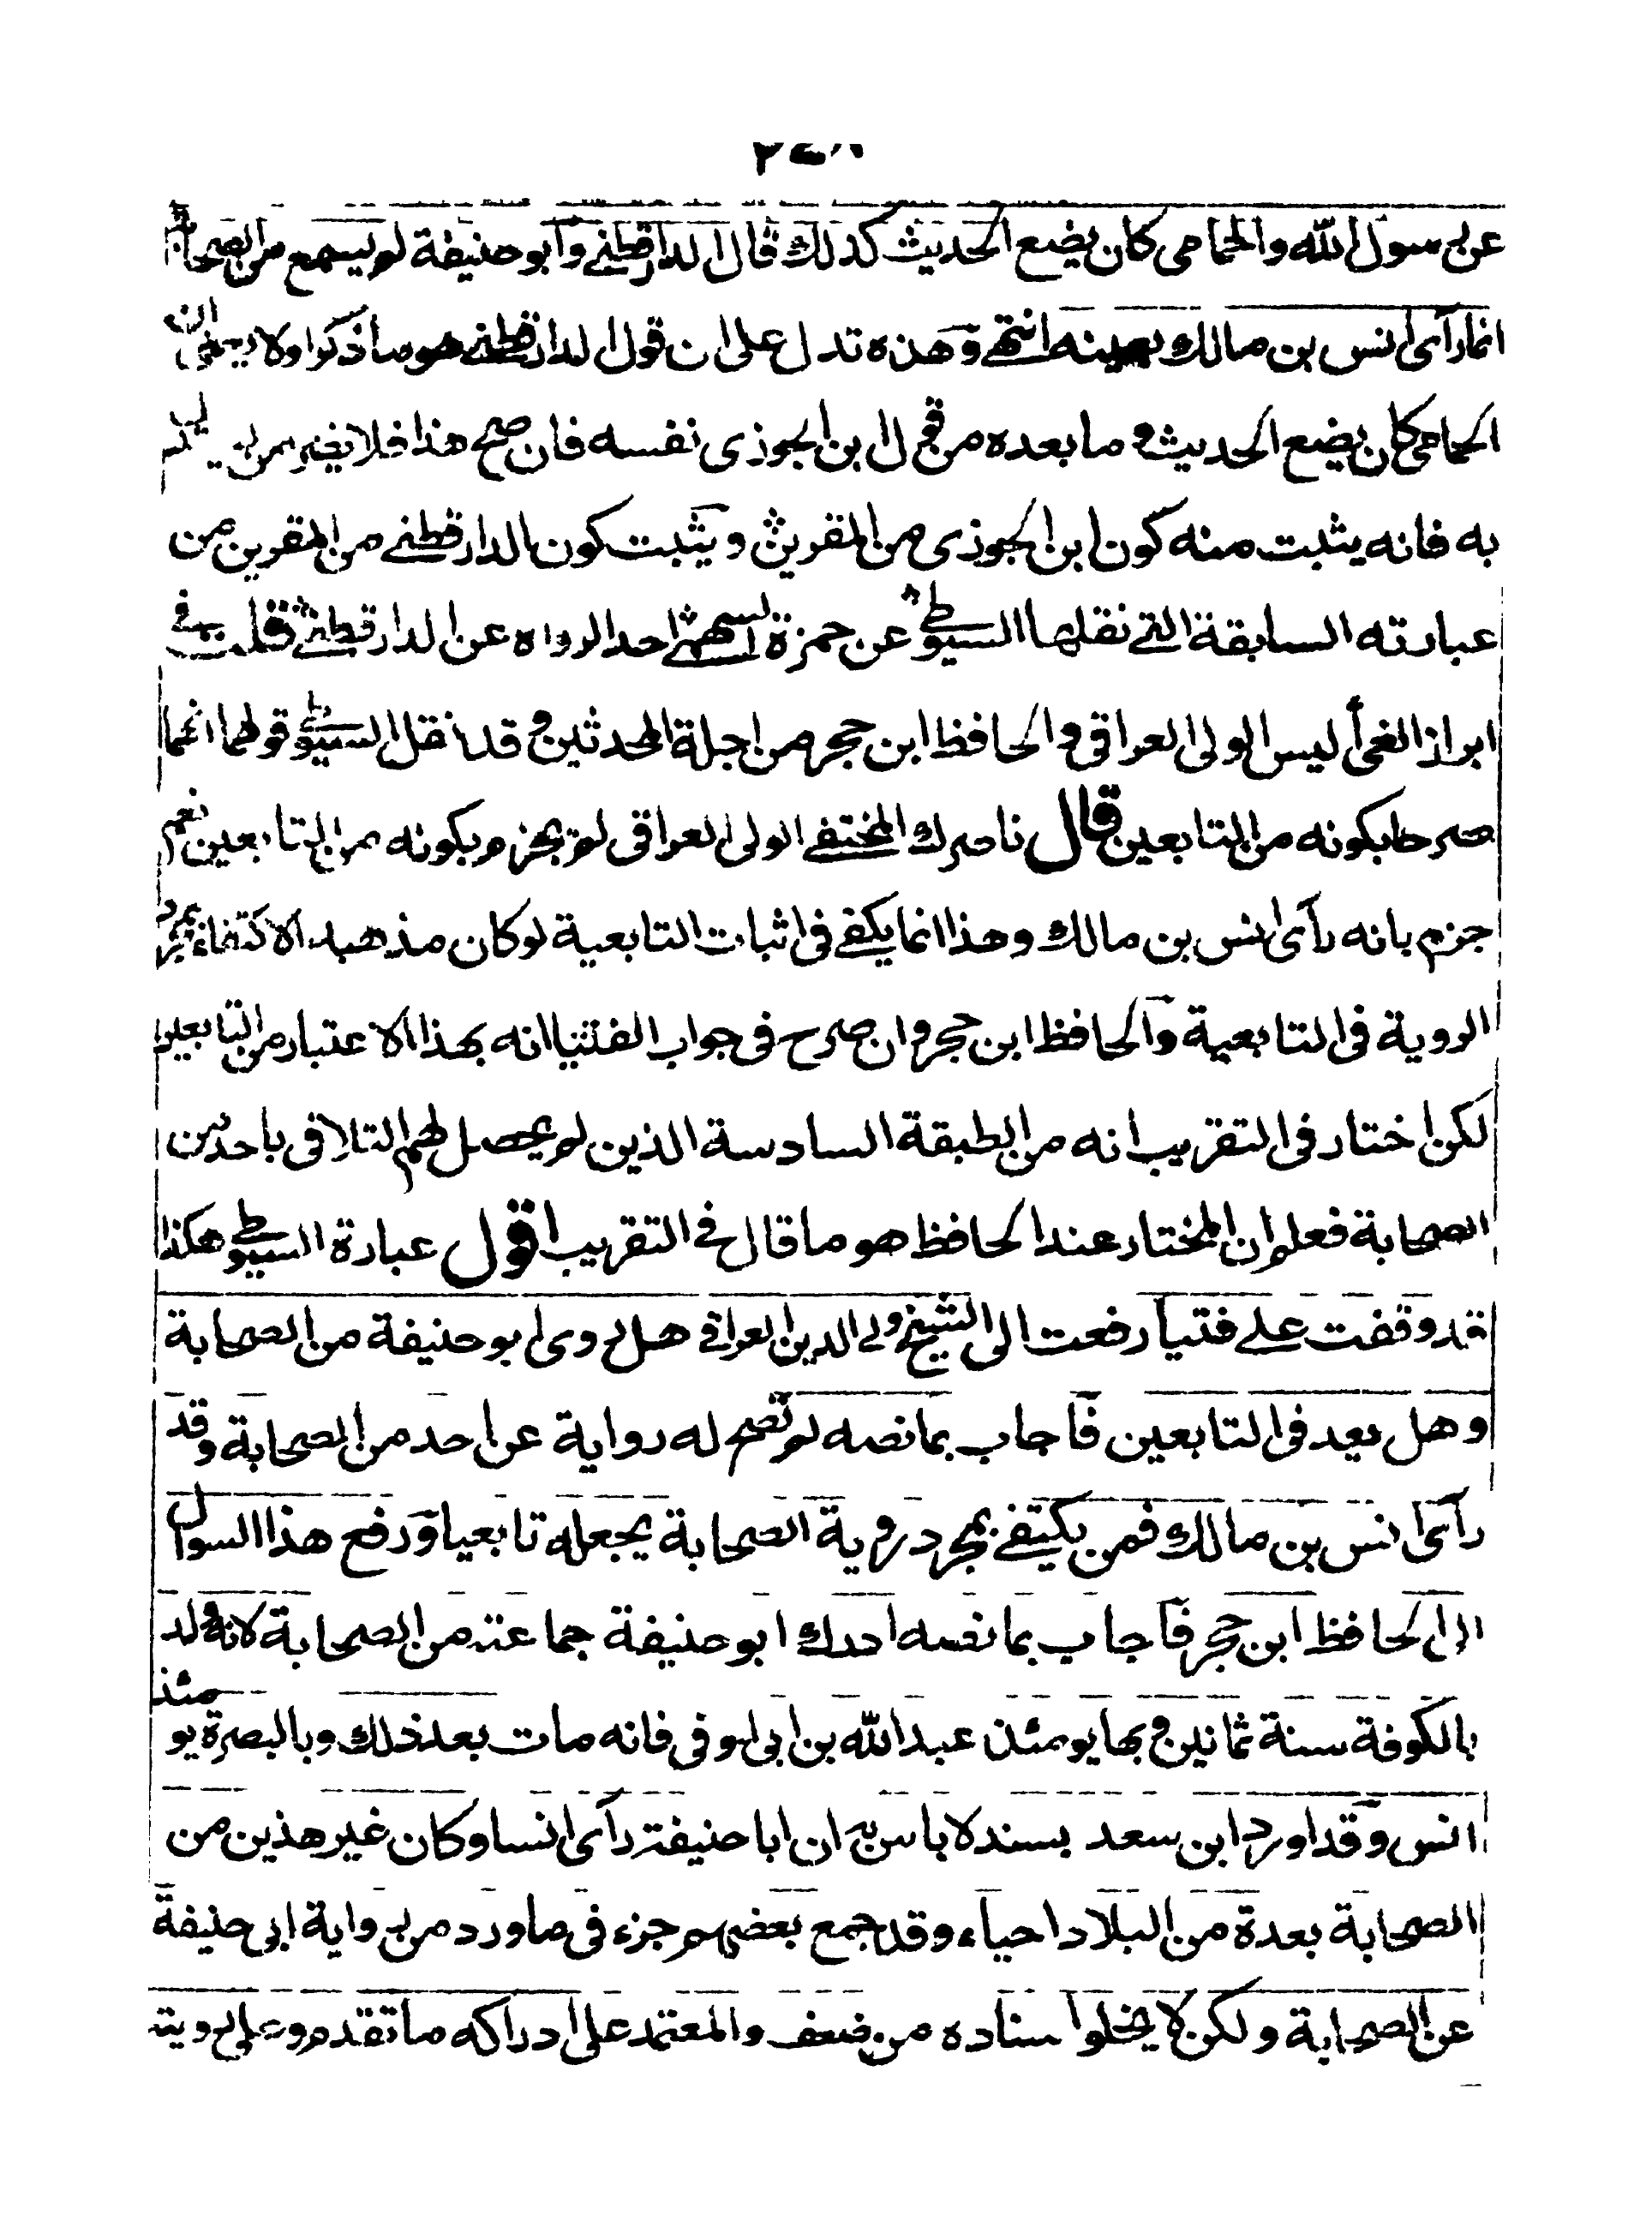 عن رسول الله والحمامى كان يضع الحديث كذلك قال الدارقطنى وابو حنيفة لم يسمع من الصحابة
انما رآى انس بن مالك بعينه انتهى وهذه تدل على ان قول الدارقطنى هو ما ذكر اولا
الحمامى كان يضع الحديث و ما بعده من قول ابن الجوزى نفسه فان صح هذا فلا
به فانه يثبت منه كون ابن الجوزى من المقرين ويثبت كون الدارقطنى من المقرين من
عبارته السابقة التى نقلها السيوطى عن حمزة السهمى احد الرواه عن الدارقطنى قلت فى
ابراز الغى أ ليس الولى العراقى والحافظ ابن حجر من اجلة المحدثين وقد نقل السيوطى قولهما انهما
صرحا بكونه من التابعين قال ناصرك المختفى الولى العراقى لم يجزم بكونه من التابعين نعم
جزم بانه رآى انس بن مالك وهذا انما يكفى فى اثبات التابعية لو كان مذهبه الاكتفاء بمجرد
الروية فى التابعية والحافظ ابن حجر وان صرح فى جواب الفتيا انه بهذا الاعتبار من التابعين
لكن اختار فى التقريب انه من الطبقة السادسة الذين لم يحصل لهم التلاقى باحد من
الصحابة فعلم ان المختار عند الحافظ هو ما قال فى التقريب اقول عبارة السيوطى هكذا
قد وقفت على فتيا رفعت الى الشيخ ولى الدين العراقى هل روى ابو حنيفة من الصحابة
وهل يعد فى التابعين فاجاب بما نصه لم تصح له رواية عن احد من الصحابة وقد
رآى انس بن مالك فمن يكتفى بمجرد روية الصحابة يجعله تابعيا ورفع هذا السوال
الى الحافظ ابن حجر فاجاب بما نصه ادرك ابو حنيفة جماعة من الصحابة لانه ولد
بالكوفة سنة ثمانين وبها يومئذ عبد الله بن ابى اوفى فانه مات بعد ذلك وبالبصرة يومئذ
انس وقد اورد ابن سعد بسند لا باس به ان ابا حنيفة رآى انسا وكان غير هذين من
الصحابة بعدة من البلاد احياء وقد جمع بعضهم جزء فى ما ورد من رواية ابى حنيفة
عن الصحابة ولكن لا يخلو اسناده من ضعف والمعتمد على ادراكه ما تقدم وعلى رويته